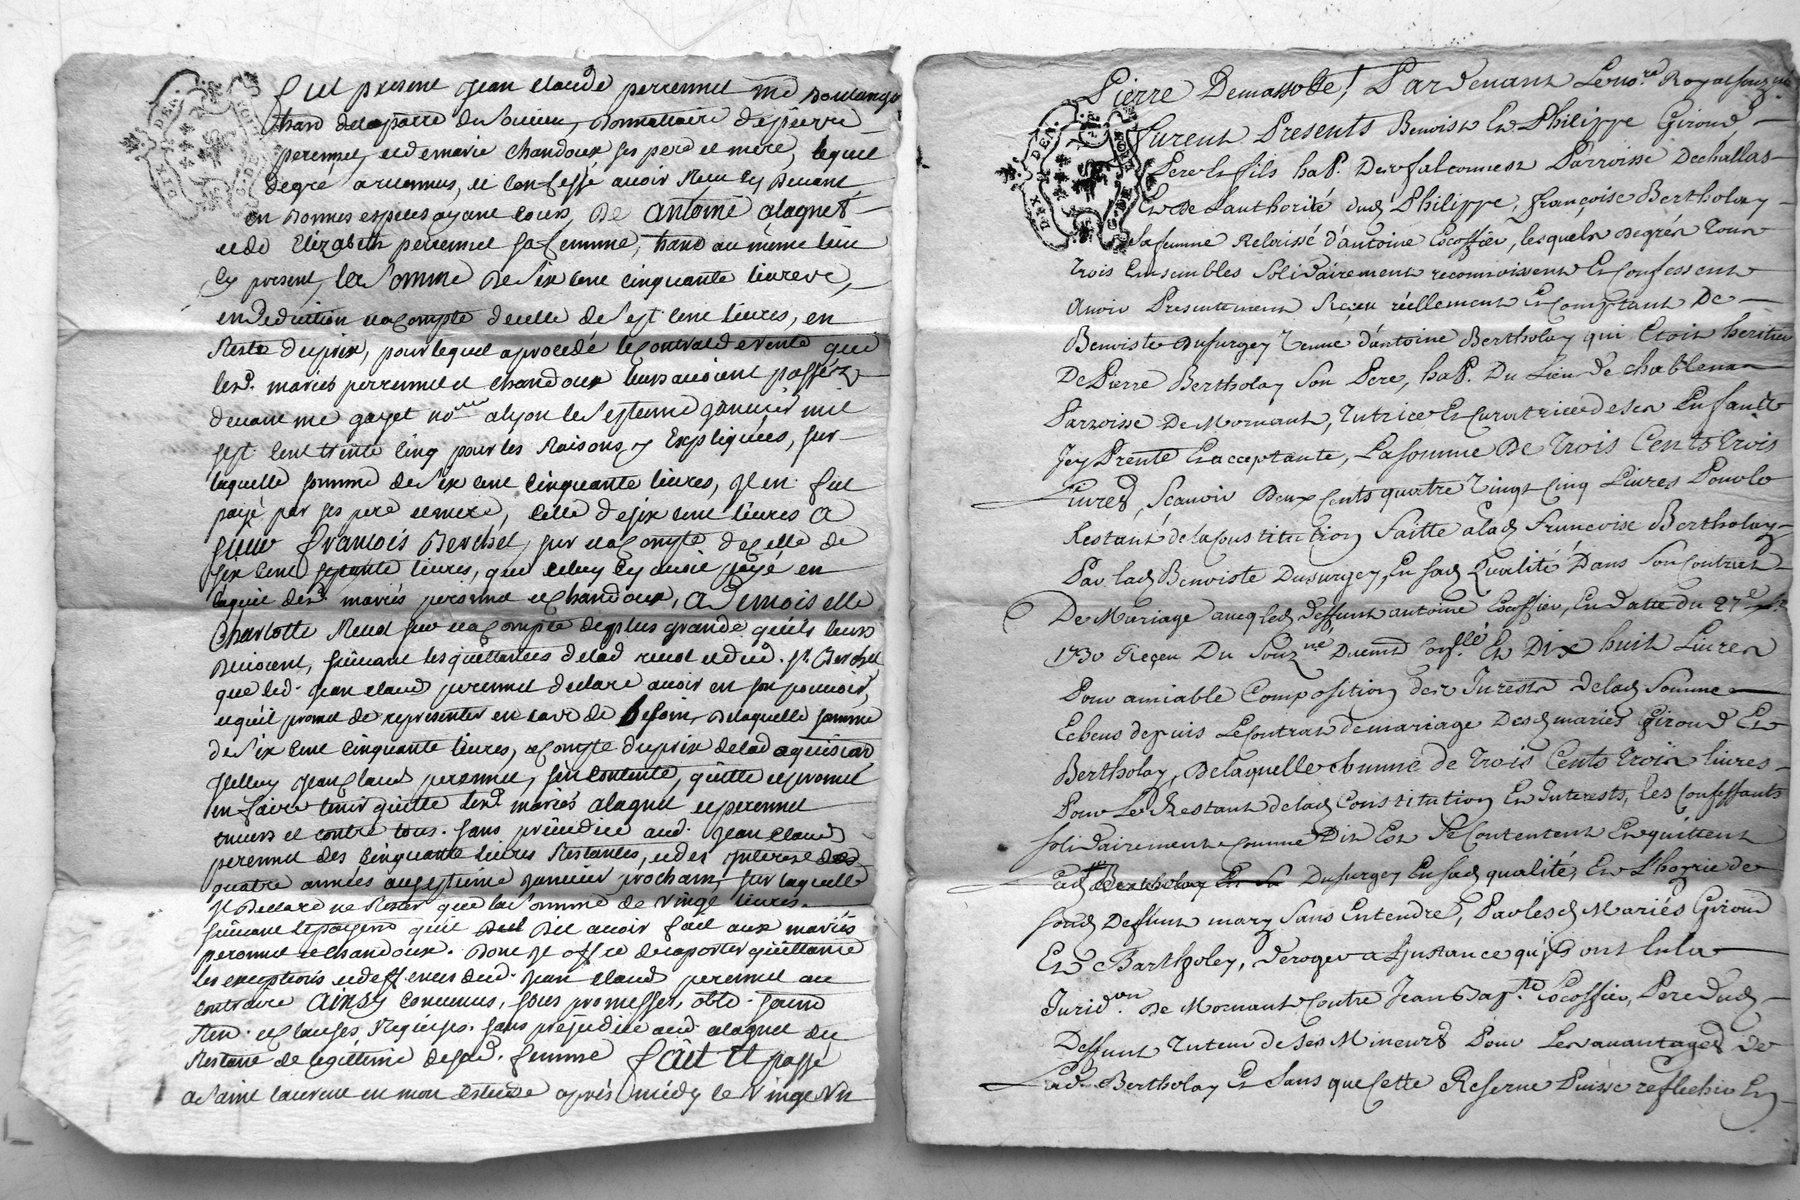 fut present Jean Claude perrennet md Boulanger
hand delaparre du Soucieu, Donnataire de pierre
perrennet, et de marie Chandoux ses pere et mere, lequel
degré a reconnus, et Confessé avoir Receu Cy Devant
en Bonnes especes ayant Cours, De antoine alagnet
et de Elizabeth perrennet sa femme, hand au même lieu
Cy present, la Somme De Six Cent Cinquante livres,
en Deduction et acompte de celle de Sept Cent livres, en
Reste du prix, pour lequel a procedé le Contrat de vente que
lesd. mariés perrennet et Chandoux leurs avoient passé
devant me gayet nore a lyon le Septieme janvier mil
Sept Cent trente Cinq pour les Raisons y Expliquées, sur
laquelle somme de Six Cent Cinquante livres, il en fut
payé par ses pere et mere, Celle de six Cent livres a
sieur françois Berchet, sur et acompte de Celle de
six Cent septante livres, que
lesd. mariés perrennet et Chandoux, a Demoiselle
Charlotte Renol sur et acompte de plus grande qu'ils leurs
Devoient, suivant les quittances de lad renol et dud. Sr. Berchet
que led. Jean Claude perrennet declare avoir en son pouvoir,
et qu'il promet de representer en cas de besoin, De laquelle somme
de Six Cent Cinquante livres, acompte du prix de lad aquisition
Jean Claude perrennet, s'en contente, quitte et promet
en faire tenir quitte lesd. mariés alagnet et perrennet
envers et contre tous. Sans préjudice aud. Jean Claude
perrennet des Cinquante livres Restantes, et des interest des
quatre années au septieme janvier prochain, sur laquelle
Il Declare ne Rester que la Somme de vingt livres,
suivant le payement qu'il Dit avoir fait aux mariés
perrennet et Chandoux. Dont Il offre de raporter quittance
les exceptions et deffences dud. Jean Claude perrennet au
Contraire Ainsy Convenus, sous promesses, oblo. soumo
Ren. et Clauses Requises. sans préjudice aud. alagnet du
Restant de legitime de sad. femme fait et passé
a Saint laurent en mon Estude après midy le vingt
Pierre Demassotte! Pardevant Le nore. Royal souzné
furent Presents Benoist Et Philippe Giroud
Pere Et fils hap. Parroisse Dechallas
Et De Lauthorité dud Philippe, françoise Bertholay
sa femme Relaissé d'antoine Escoffier, lesquels Degrés Tous
Trois Ensembles Solidairement reconnoissent Et Confessent
Avoir Presentement Reçeu réellement Et Comptant De
Benoiste Dusurgey Veuve d'antoine Bertholay qui Etoit heritier
De Pierre Bertholay Son Pere, hap. Du Lieu de Chablenas
Parroisse De Mornant, Tutrice Et Curatrice de ses Enfants
Jcy Prente Et acceptante, La somme De Trois Cents Trois
Livres, Scavoir Deux Cents quatre Vingt Cinq Livres Pour le
Restant de la Constitution faitte a lad francoise Bertholay
Par lad Benoiste Dusurgey, En sad Qualité Dans Son Contrat
De Mariage avec led Deffunt antoine Escoffier, En datte du 27e
1730 Reçeu Du Souzné, Et Dix huit Livres
Pour amiable Composition des Jnterests de lad Somme
Echeus depuis Le Contrat de mariage Desd mariés Giroud Et
Bertholay, De laquelle Somme de Trois Cents Trois Livres
Pour Le Restant de lad Constitution Et Interests, les Confessants
Solidairement Comme Dit Est Se Contentent Et quittent
Lad Bertholay Et Sa Dusurgey En sad qualité, Et L'hoyrie de
sond Deffunt mary Sans Entendre, Par lesd Mariés Giroud
Et Bartholey, Deroger a Jnstance qu'ils ont En la
Juridon. De Mornant Contre Jean Bapte Escoffier, Pere dud
Deffunt Tuteur de Ses Mineurs Pour Les avantages de
Lad. Bertholay Et Sans que Cette Reserve Puisse reflechir En